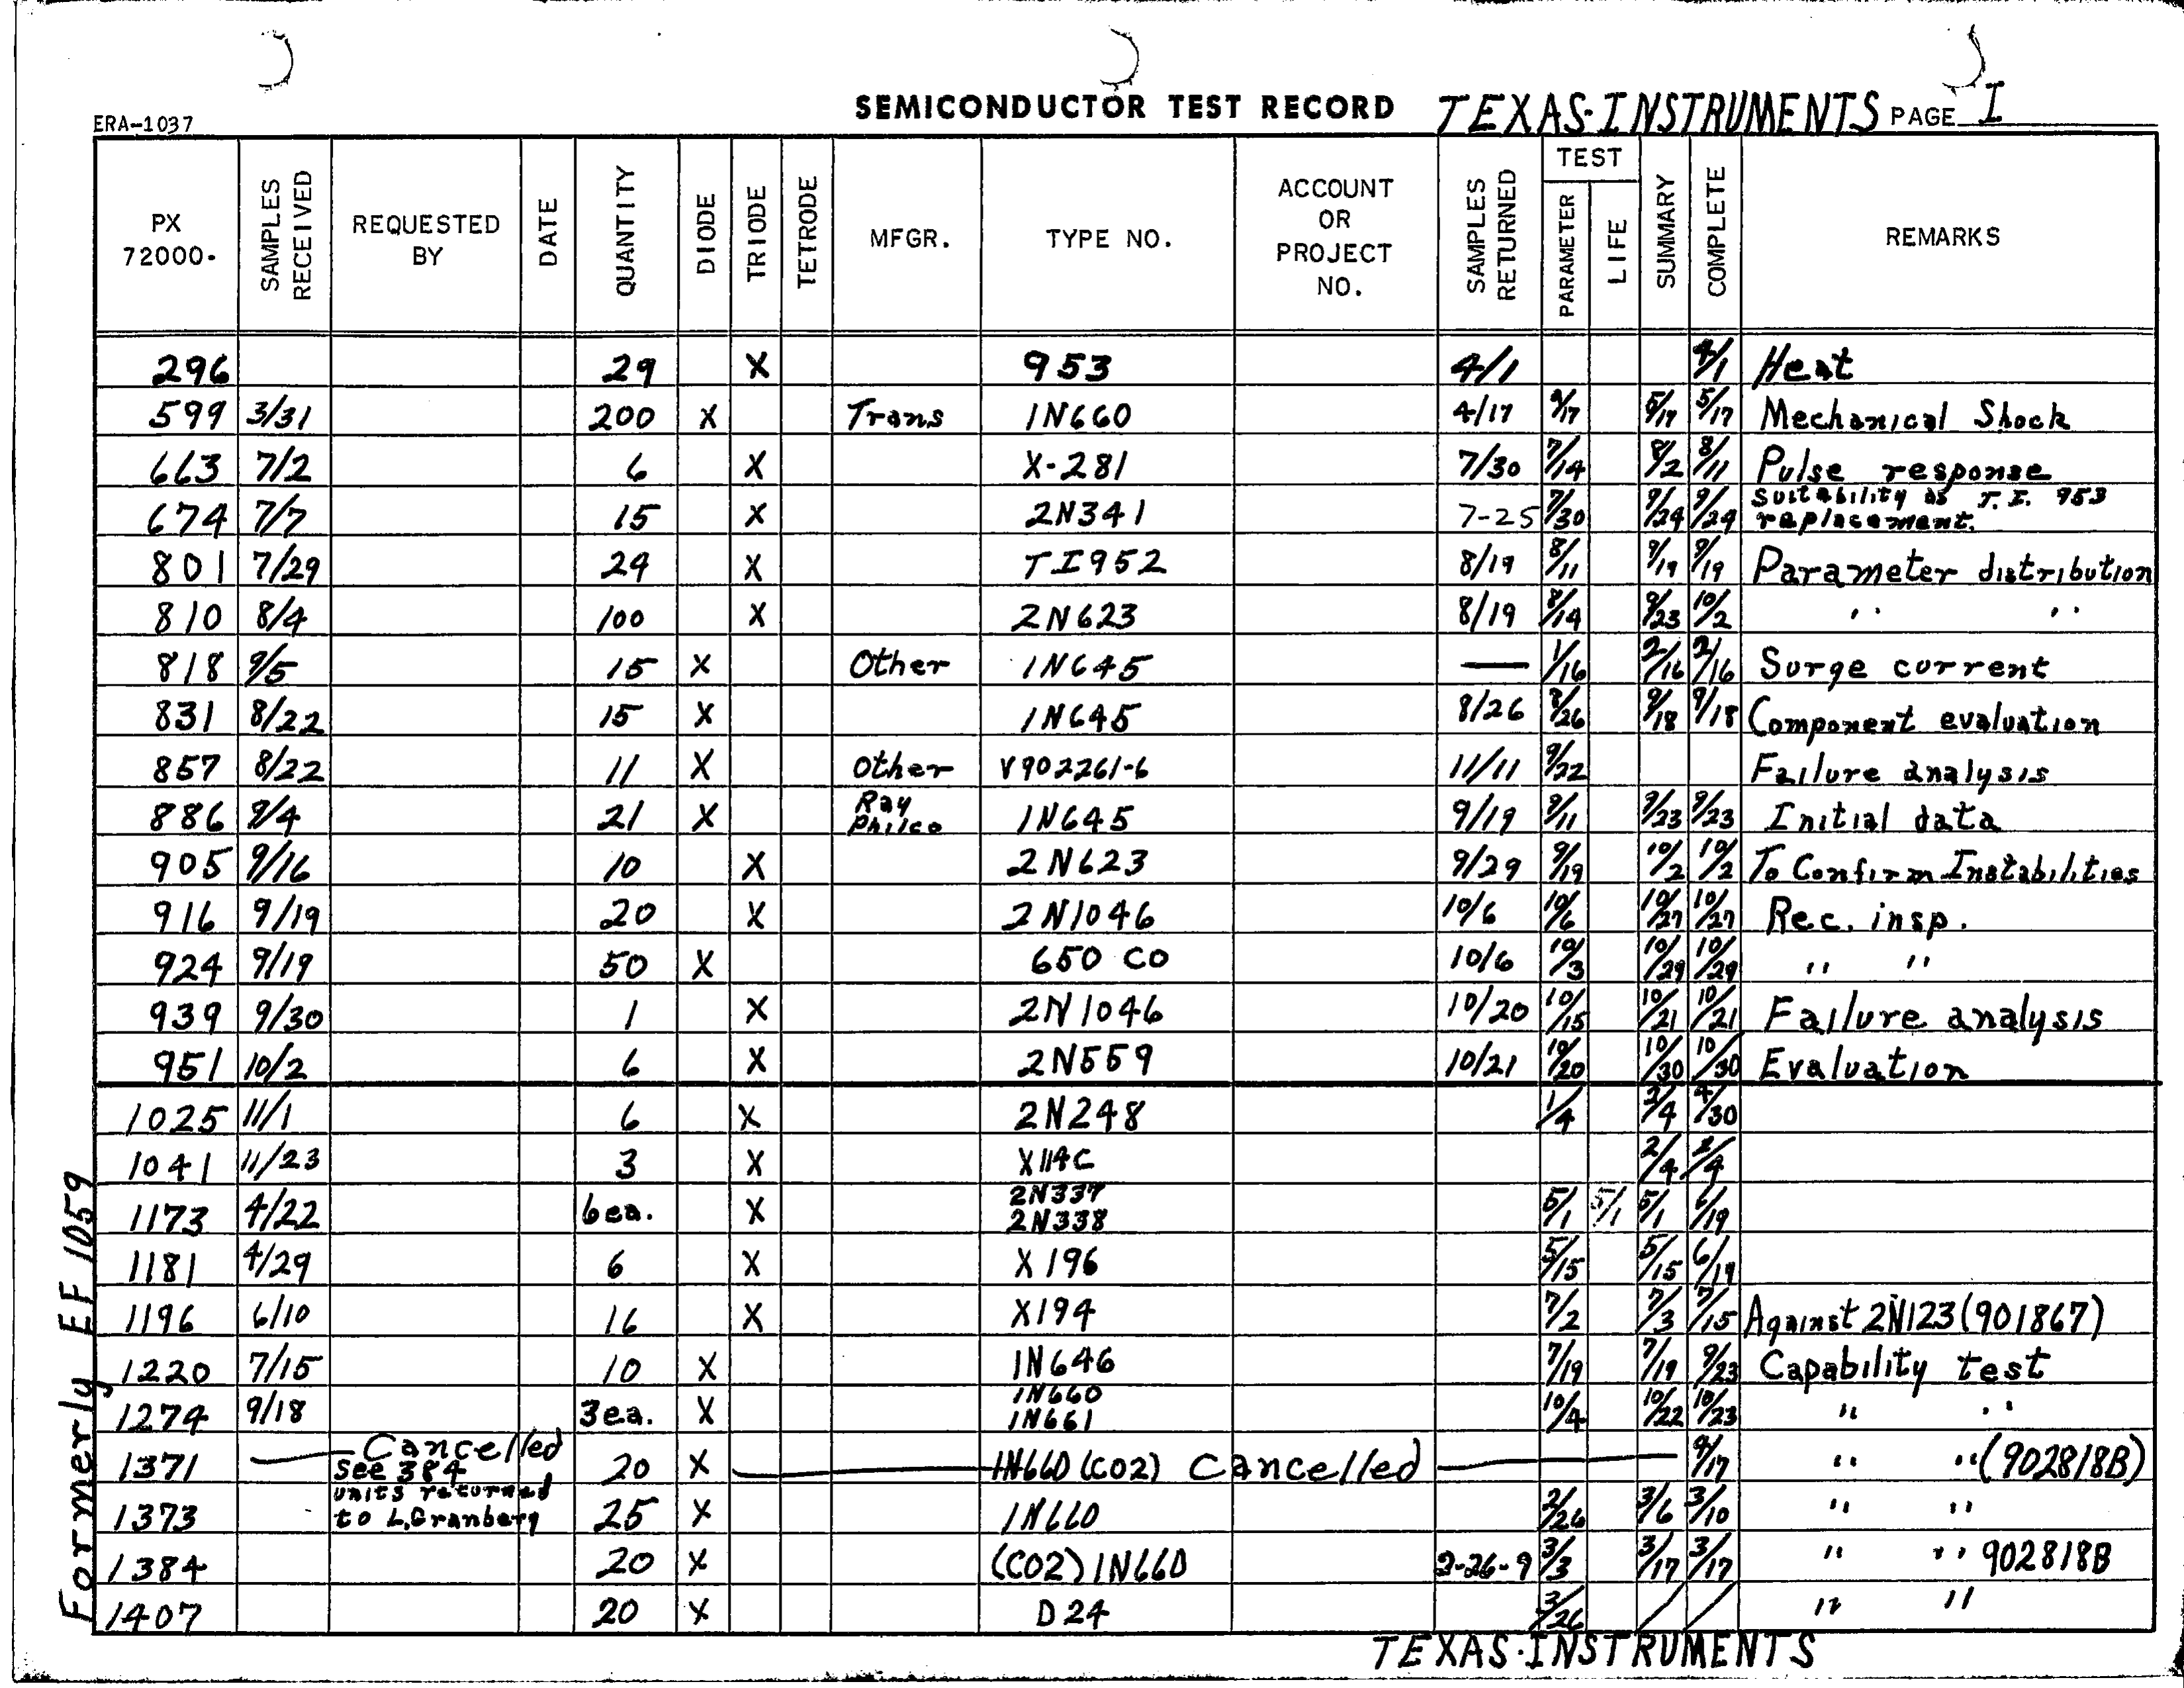 SEMICONDUCTOR TEST RECORD TEXAS·INSTRUMENTS PAGE I
ERA-1037
PX 72000- SAMPLES RECEIVED REQUESTED BY DATE QUANTITY DIODE TRIODE TETRODE MFGR. TYPE NO. ACCOUNT OR PROJECT NO. SAMPLES RETURNED TEST PARAMETER LIFE SUMMARY COMPLETE REMARKS
296 29 X 953 4/1 4/1 Heat
599 3/31 200 X Trans 1N660 4/17 4/17 5/17 5/17 Mechanical Shock
663 7/2 6 X X-281 7/30 7/14 8/2 8/11 Pulse response
674 7/7 15 X 2N341 7-25 7/30 9/24 9/24 Suitability as T.I. 953 replacement.
801 7/29 24 X TI952 8/19 8/11 9/19 9/19 Parameter distribution
810 8/4 100 X 2N623 8/19 8/14 9/23 10/2 " "
818 9/5 15 X Other 1N645 — 1/16 2/16 2/16 Surge current
831 8/22 15 X 1N645 8/26 8/26 9/18 9/18 Component evaluation
857 8/22 11 X Other V902261-6 11/11 9/22 Failure analysis
886 9/4 21 X Ray Philco 1N645 9/19 9/11 9/23 9/23 Initial data
905 9/16 10 X 2N623 9/29 9/19 10/2 10/2 To Confirm Instabilities
916 9/19 20 X 2N1046 10/6 10/6 10/27 10/27 Rec. insp.
924 9/19 50 X 650 CO 10/6 10/3 10/29 10/29 " "
939 9/30 1 X 2N1046 10/20 10/15 10/21 10/21 Failure analysis
951 10/2 6 X 2N559 10/21 10/20 10/30 10/30 Evaluation
1025 11/1 6 X 2N248 1/4 2/4 4/30
1041 11/23 3 X X114C 2/4 2/4
1173 4/22 6ea. X 2N337 2N338 5/1 5/1 5/1 6/19
1181 4/29 6 X X196 5/15 5/15 6/19
1196 6/10 16 X X194 7/2 7/3 7/15 Against 2N123 (901867)
1220 7/15 10 X 1N646 7/19 7/19 9/23 Capability test
1274 9/18 3ea. X 1N660 1N661 10/4 10/22 10/23 " "
1371 — Cancelled See 384 20 X 1N660 (CO2) Cancelled 4/17 " " (902818B)
1373 units returned to L.Granberg 25 X 1N660 2/26 3/6 3/10 " "
1384 20 X (CO2) 1N660 2-26-9 3/3 3/17 3/17 " " 902818B
1407 20 X D24 3/26 / / " "
TEXAS·INSTRUMENTS
Formerly EF 1059